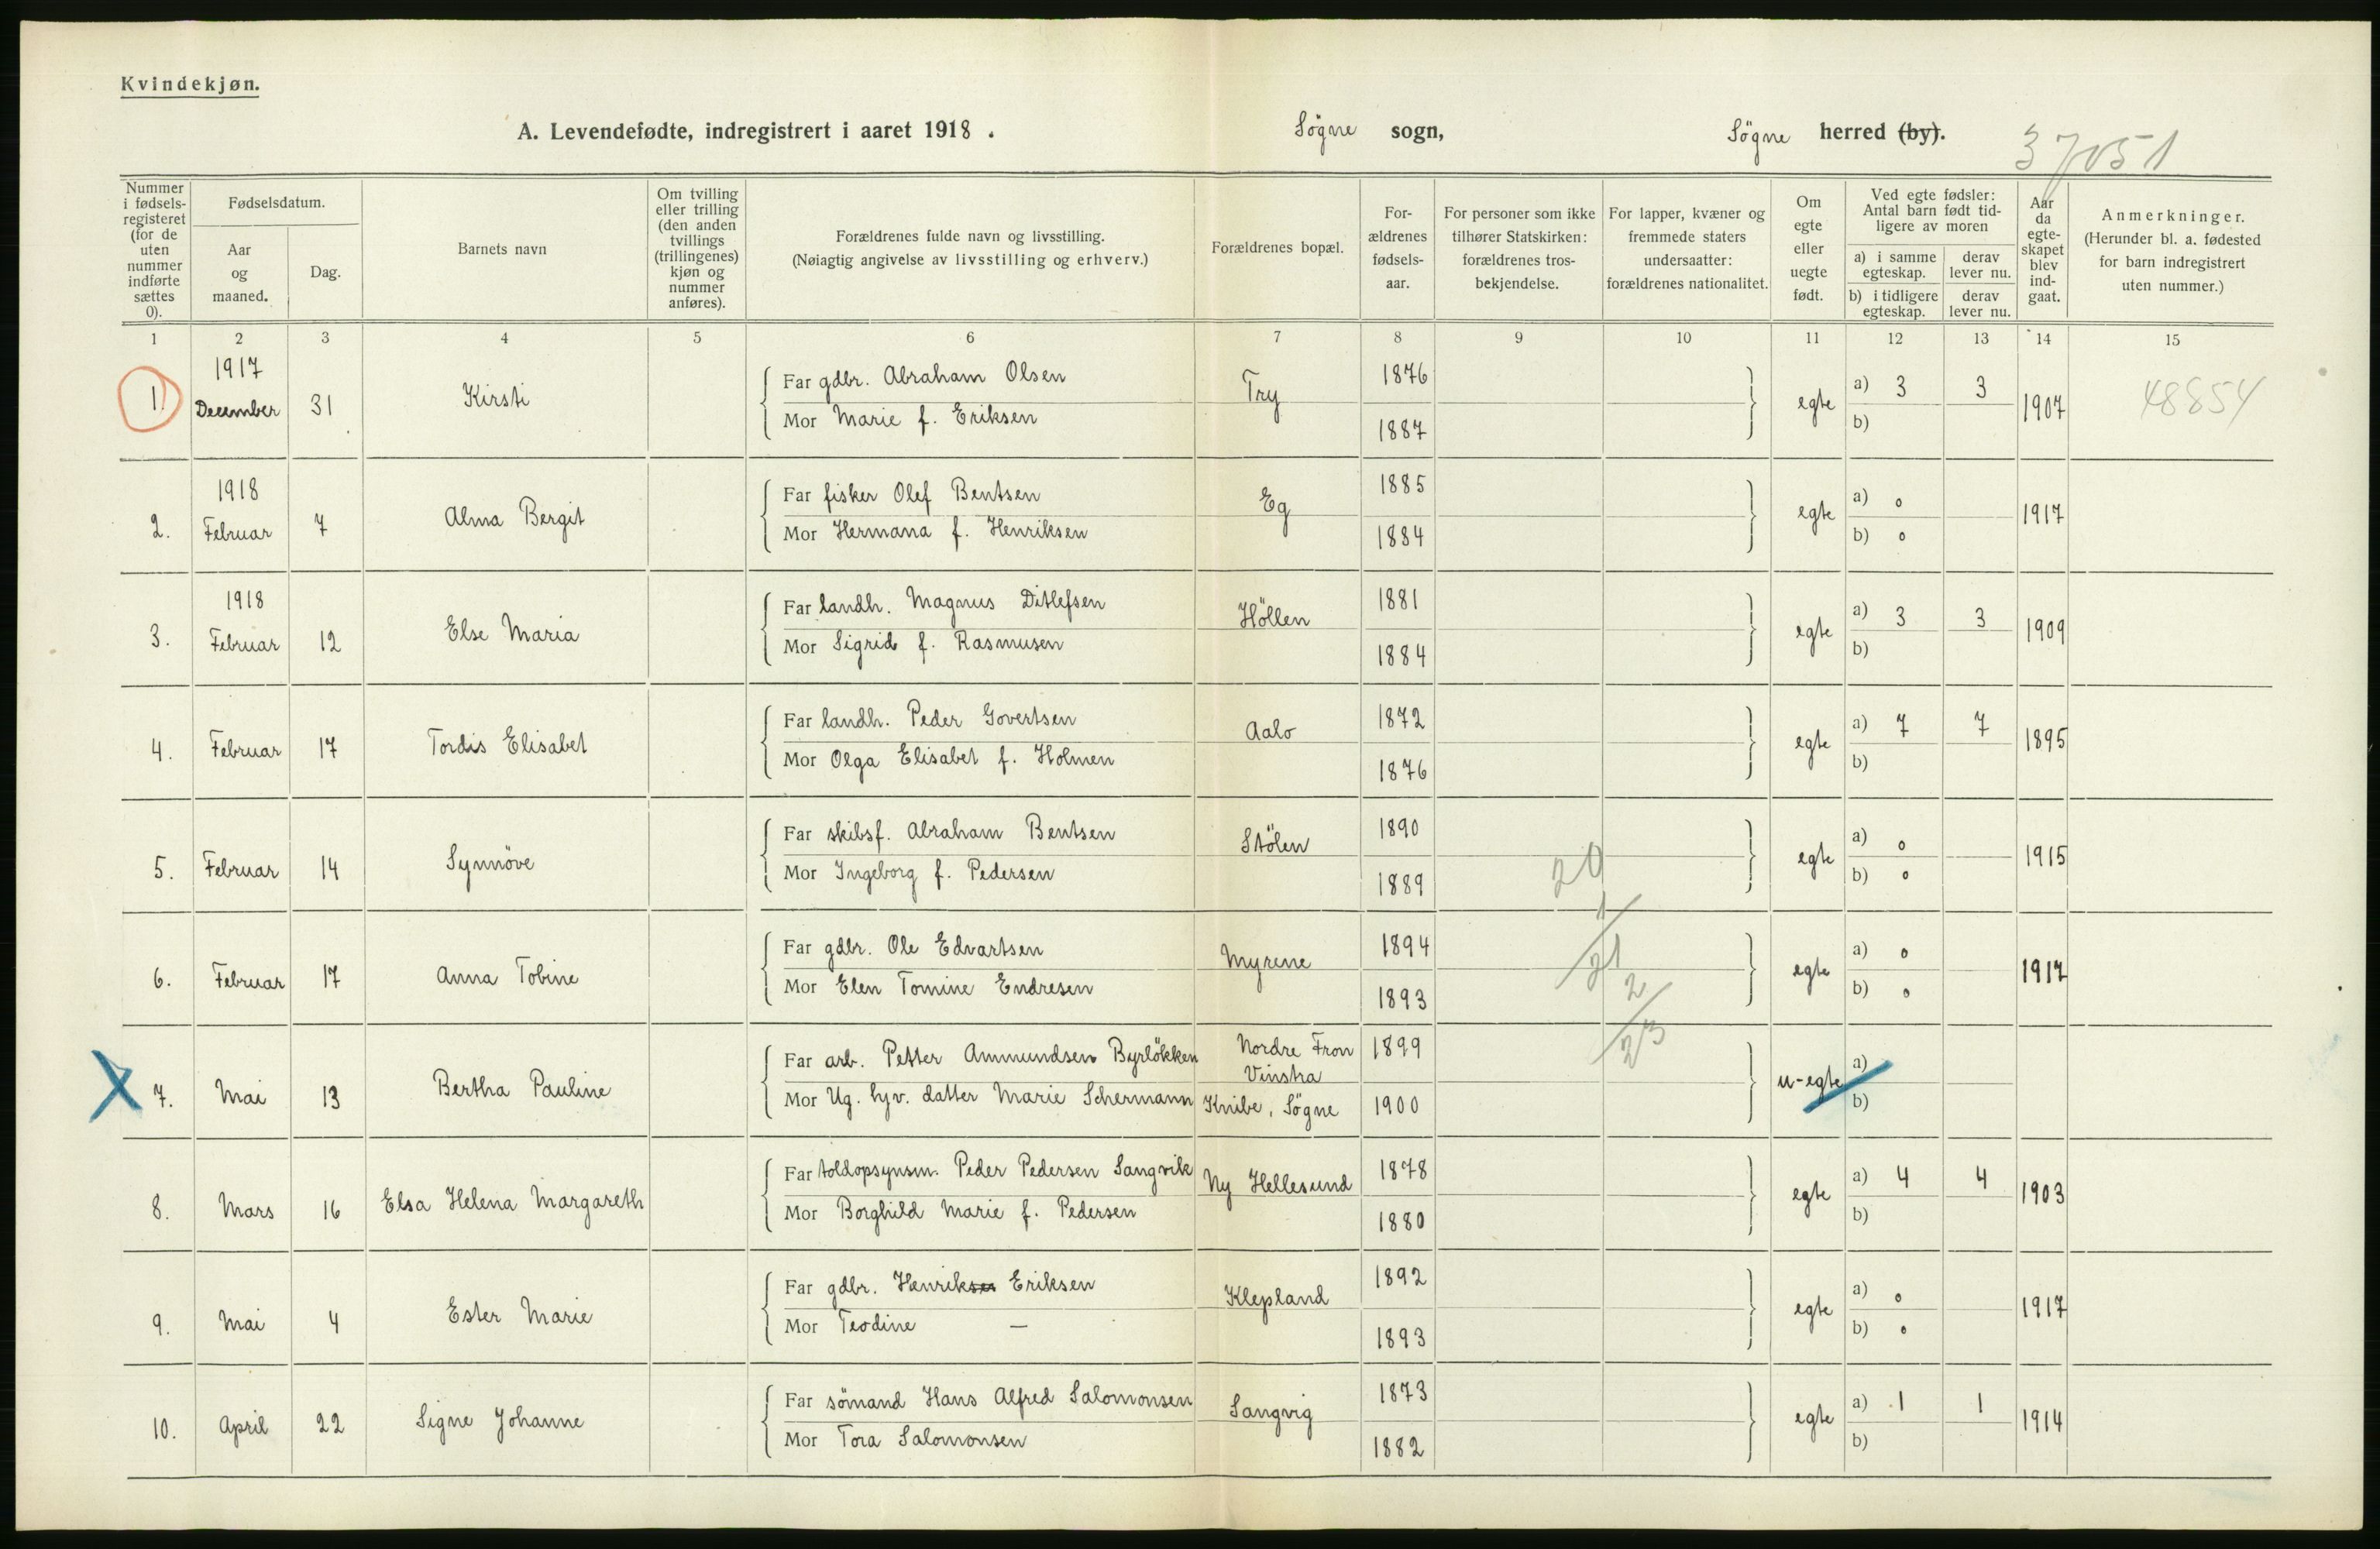 Kvindekjøn.
A. Levendefødte, indregistrert i aaret 1918. Søgne sogn, Søgne herred (by).
37051
Nummer i fødsels-registeret (for de uten nummer indførte sættes 0).
Fødselsdatum.
Aar og maaned.
Dag.
Barnets navn
Om tvilling eller trilling (den anden tvillings (trillingenes) kjøn og nummer anføres).
Forældrenes fulde navn og livsstilling.
(Nøiagtig angivelse av livsstilling og erhverv.)
Forældrenes bopæl.
For-ældrenes fødsels-aar.
For personer som ikke tilhører Statskirken: forældrenes tros-bekjendelse.
For lapper, kvæner og fremmede staters undersaatter: forældrenes nationalitet.
Om egte eller uegte født.
Ved egte fødsler: Antal barn født tid-ligere av moren
a) i samme egteskap.
derav lever nu.
b) i tidligere egteskap.
derav lever nu.
Aar da egte-skapet blev ind-gaat.
Anmerkninger.
(Herunder bl. a. fødested for barn indregistrert uten nummer.)
1 2 3 4 5 6 7 8 9 10 11 12 13 14 15
1. 1917 December 31 Kirsti Far gdbr. Abraham Olsen Try 1876 egte a) 3 3 1907 48854
Mor Marie f. Eriksen 1887 b)
2. 1918 Februar 7 Alma Bergit Far fisker Olef Bentsen Eg 1885 egte a) 0 1917
Mor Hermana f. Henriksen 1884 b) 0
3. 1918 Februar 12 Else Maria Far landh. Magnus Ditlefsen Höllen 1881 egte a) 3 3 1909
Mor Sigrid f. Rasmusen 1884 b)
4. Februar 17 Tordis Elisabet Far landh. Peder Govertsen Aalo 1872 egte a) 7 7 1895
Mor Olga Elisabet f. Holmen 1876 b)
5. Februar 14 Synnöve Far skibsf. Abraham Bentsen Stölen 1890 egte a) 0 1915
Mor Ingeborg f. Pedersen 1889 b) 0
20
1
6. Februar 17 Anna Tobine Far gdbr. Ole Edvartsen Myrene 1894 egte a) 0 1917
21
Mor Elen Tomine Endresen 1893 b) 0
2
23
7. Mai 13 Bertha Pauline Far arb. Petter Ammundsen Byrlökken Nordre Fron Vinstra 1899 u-egte a)
Mor Ug. hjv. datter Marie Schermann Knibe, Sögne 1900 b)
8. Mars 16 Elsa Helena Margareth Far toldopsynsm. Peder Pedersen Langvik Ny Hellesund 1878 egte a) 4 4 1903
Mor Borghild Marie f. Pedersen 1880 b)
9. Mai 4 Ester Marie Far gdbr. Henriksen Eriksen Klepland 1892 egte a) 0 1917
Mor Teodine — 1893 b) 0
10. April 22 Signe Johanne Far sömand Hans Alfred Salomonsen Langvig 1873 egte a) 1 1 1914
Mor Tora Salomonsen 1882 b)